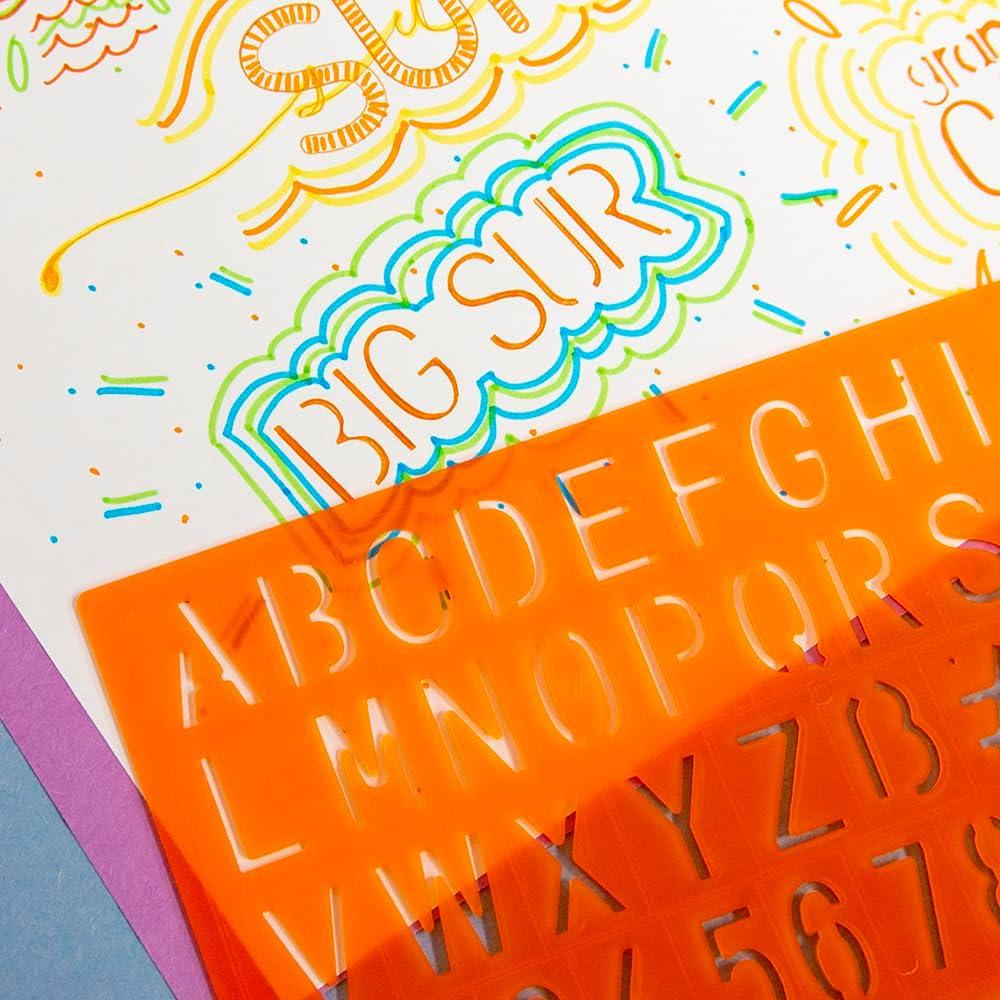 SUR
gran
C
BIG SUR
A B C D E F G H I
L M N O P Q R S
V W X Y Z ß £
5 6 7 8